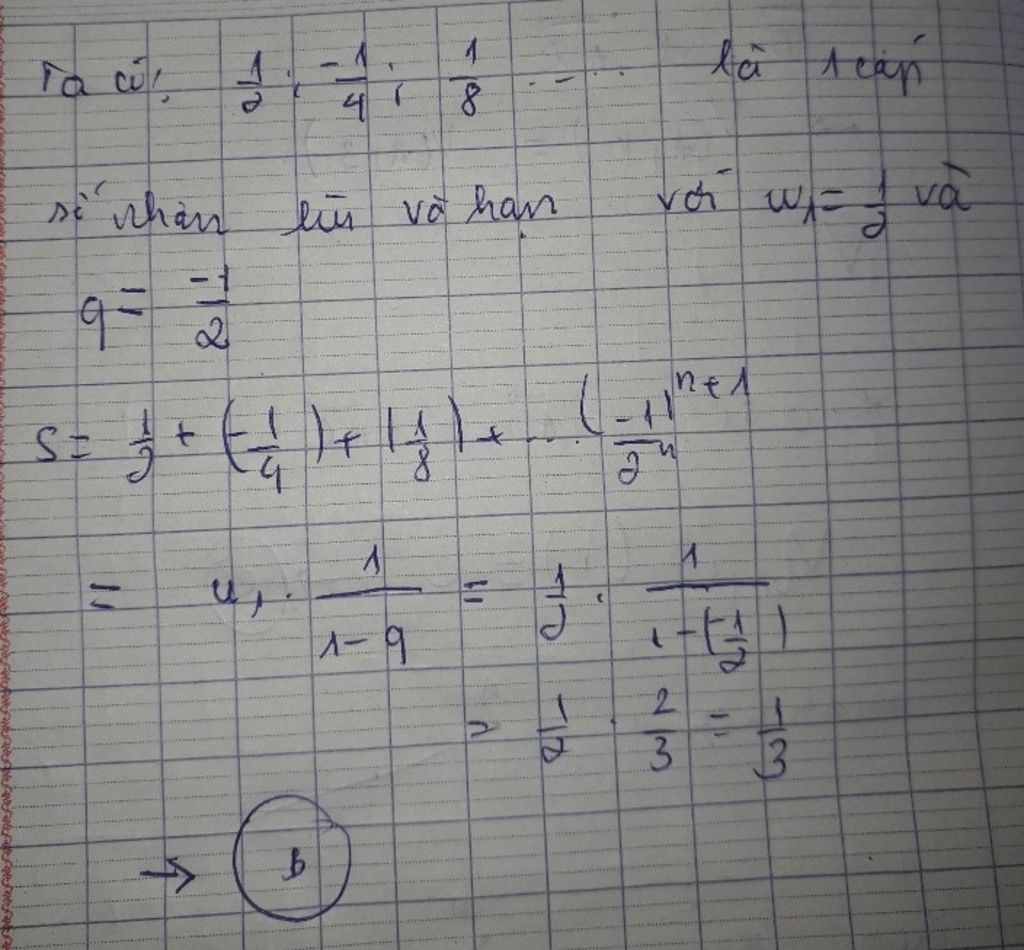 Ta có: 1/2 ; -1/4 ; 1/8 ..... là 1 cấp
số nhân lùi vô hạn với u₁ = 1/2 và
q = -1/2
S = 1/2 + (-1/4) + (1/8) + ... (-1)^(n+1)/2^n
= u₁ . 1/(1-q) = 1/2 . 1/(1-(-1/2))
= 1/2 . 2/3 = 1/3
→ B